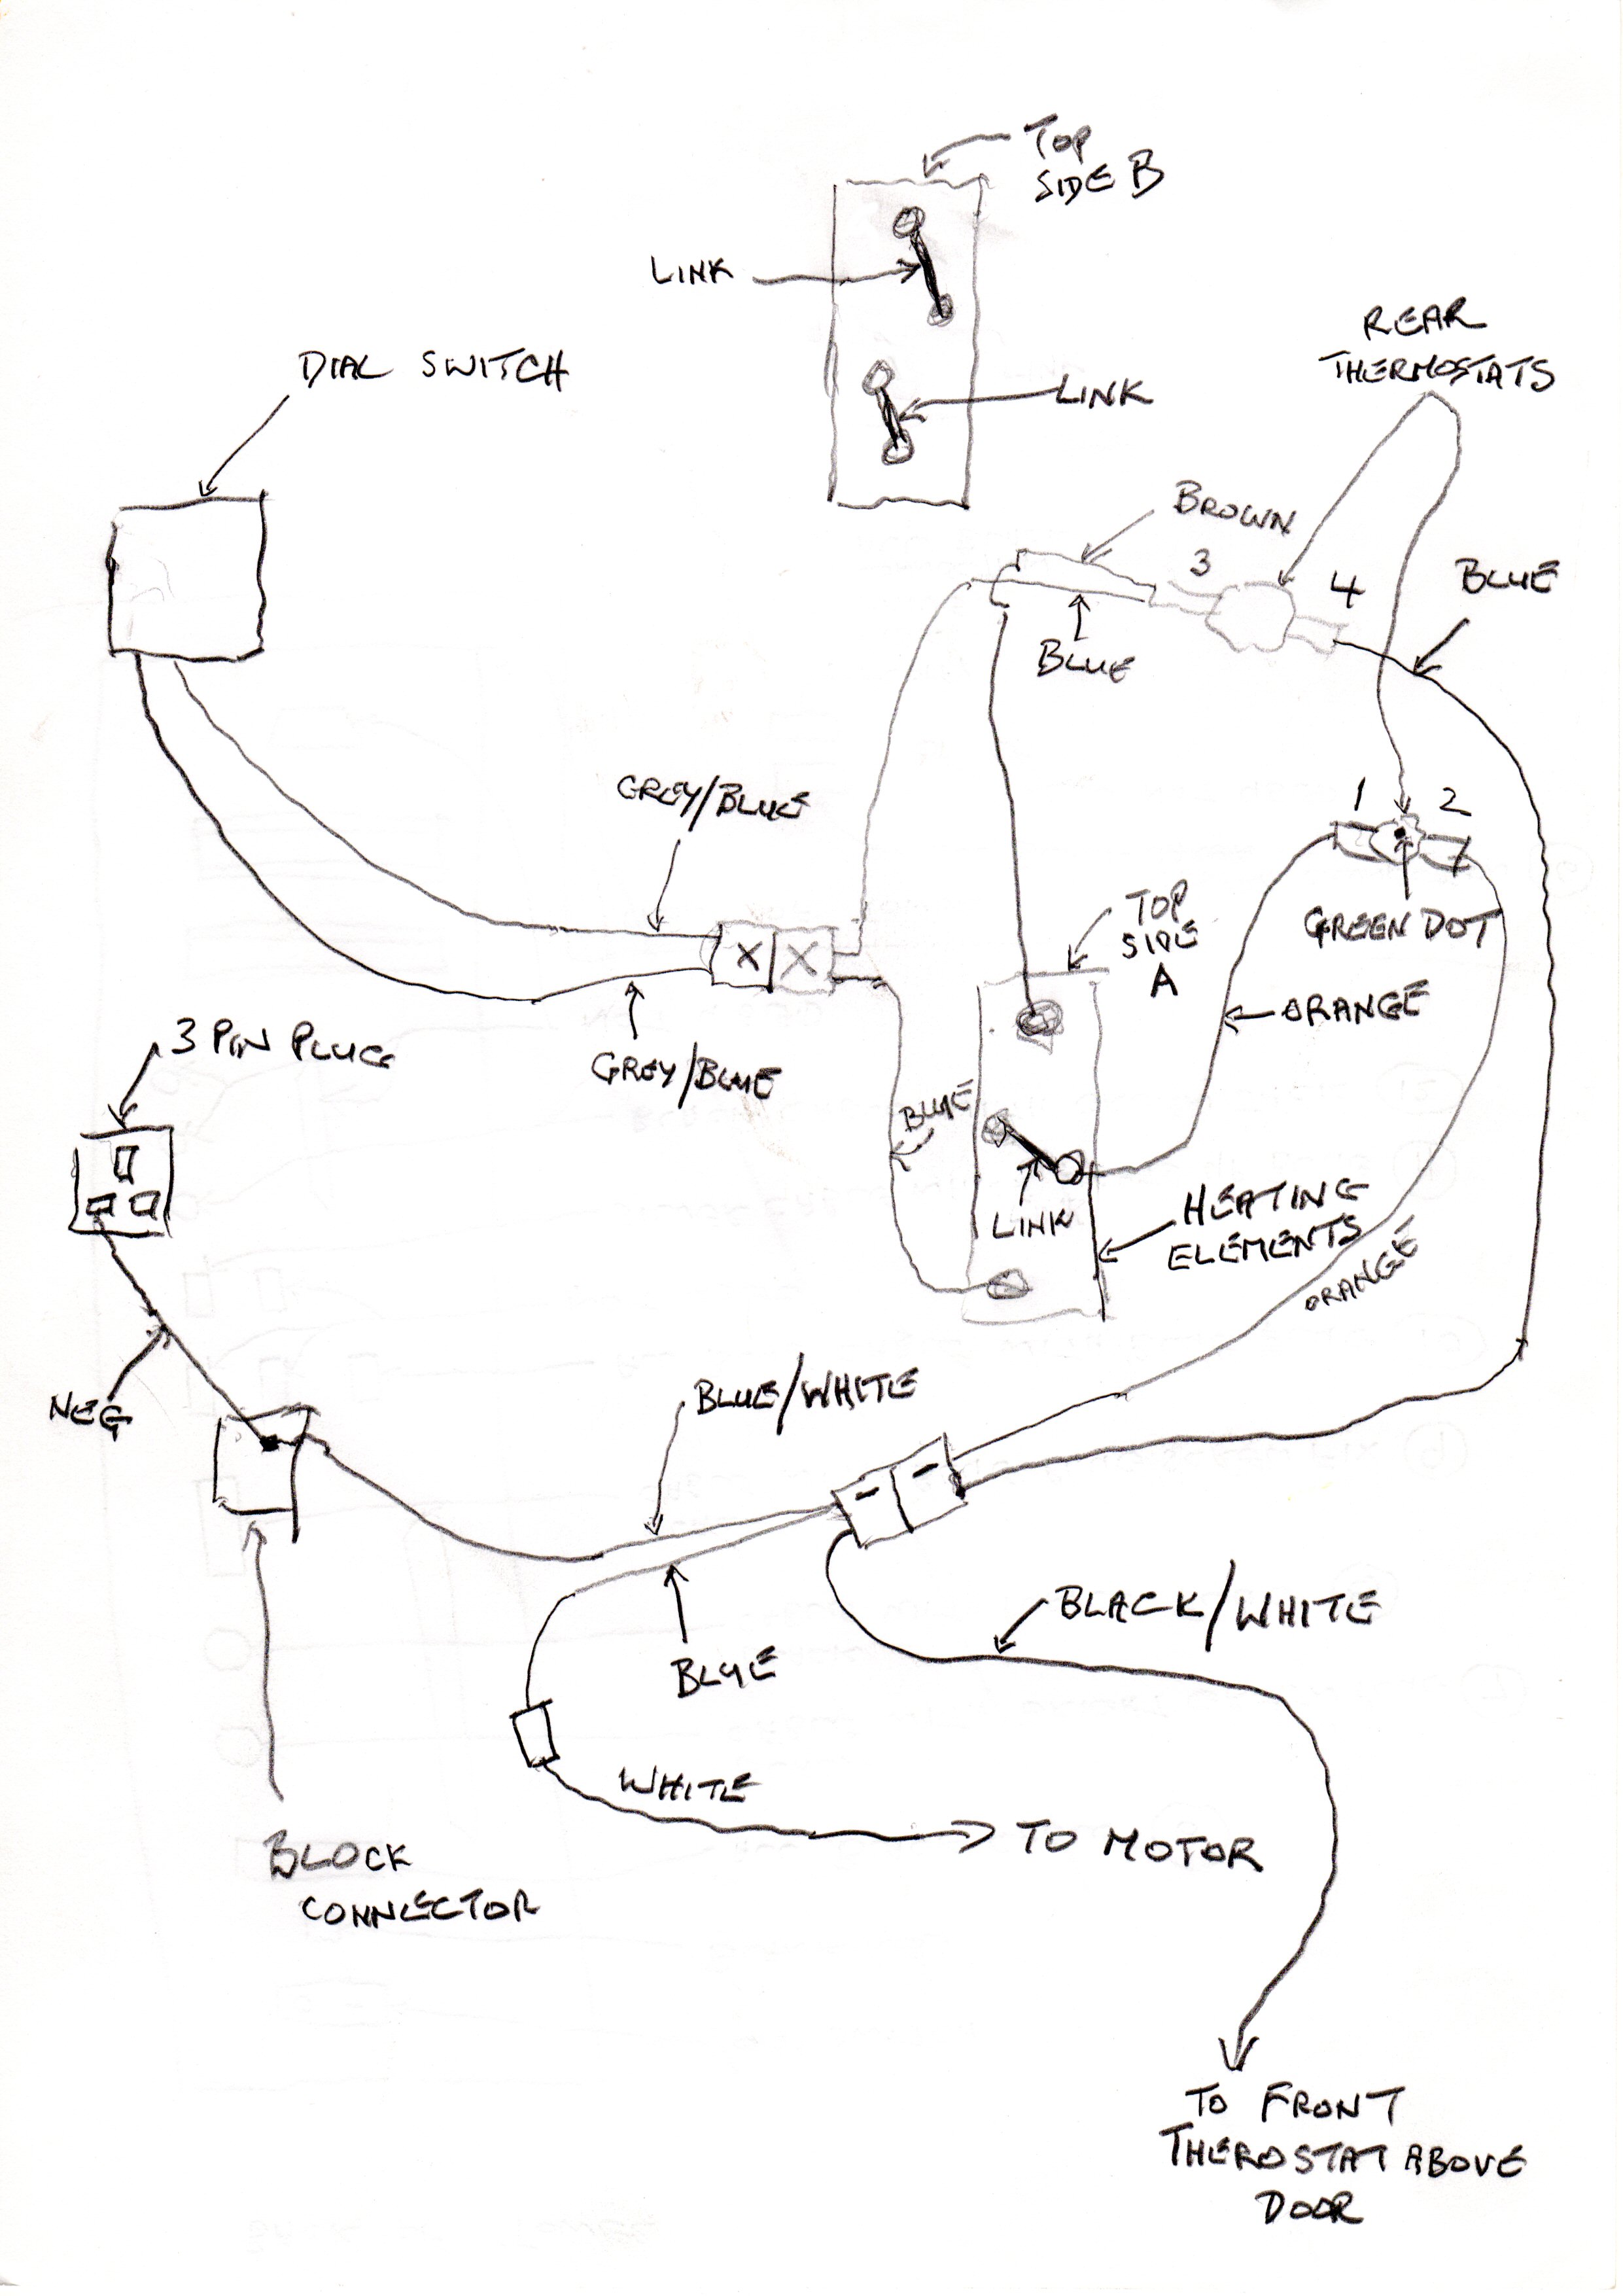 TOP
SIDE B
LINK
LINK
REAR
THERMOSTATS
DIAL SWITCH
BROWN
3
4
BLUE
BLUE
GREY/BLUE
1
2
GREEN DOT
TOP
SIDE
A
X X
ORANGE
3 PIN PLUG
GREY/BLUE
BLUE
LINK
HEATING
ELEMENTS
ORANGE
NEG
BLUE/WHITE
BLACK/WHITE
BLUE
WHITE
TO MOTOR
BLOCK
CONNECTOR
TO FRONT
THEROSTAT ABOVE
DOOR